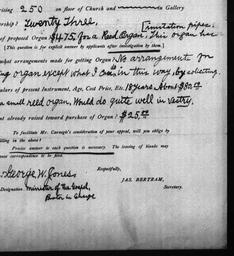 rising 250 on floor of Church and in Gallery
ship? Twenty Three. [imitation pipes.
of proposed Organ? $475. for a Reed Organ. This organ has
[This question is for explicit answer by applicants after investigation by them.]
what arrangements made for getting Organ? No arrangement for
organ except what I can in this way, by soliciting.
lars of present Instrument, Age, Cost Price, Etc. 18 years. About $80.00
small reed organ. Would do quite well in Vestry.
nt already raised toward purchase of Organ? $25.00
To facilitate Mr. Carnegie's consideration of your appeal, will you oblige by
filling in the above?
Precise answer to each question is necessary. The leaving of blanks may
correspondence to be
Respectfully,
George W. Jones
JAS. BERTRAM,
Designation. Minister of the Gospel, Secretary.
Pastor in Charge